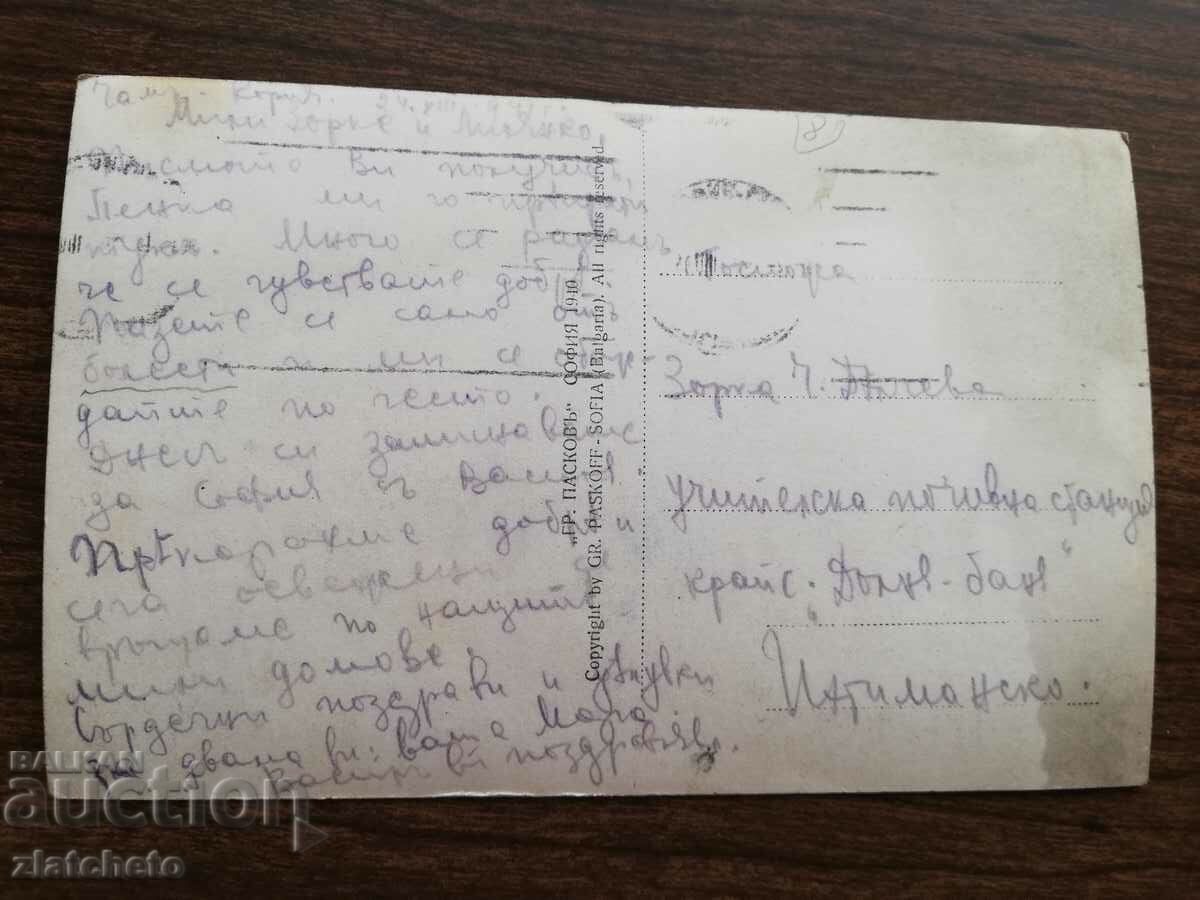 Чам. Кория. 24. VIII. 941 г.
Мили Зорке и
Писмото Ви получих,
Пенка ми го
Много се радвам
че се чувствате добре.
Пазете се само отъ
болести и ми се
по често.
Днесъ си заминаваме
за София съ Васил
Прекарахме добре и
сега освежени се
връщаме по нашите
мили домове.
Сърдечни поздрави и целувки
на двама ви: ваша Мара.
Васил ви поздравява.
„ГР. ПАСКОВЪ“ СОФИЯ 1940
Copyright by GR. PASKOFF - SOFIA (Bulgaria). All rights reserved.
8
Зорка Ч.
учителска почивна станция
край с. „Долня-баня“
Ихтиманско.
BALKAN
auction
zlatcheto